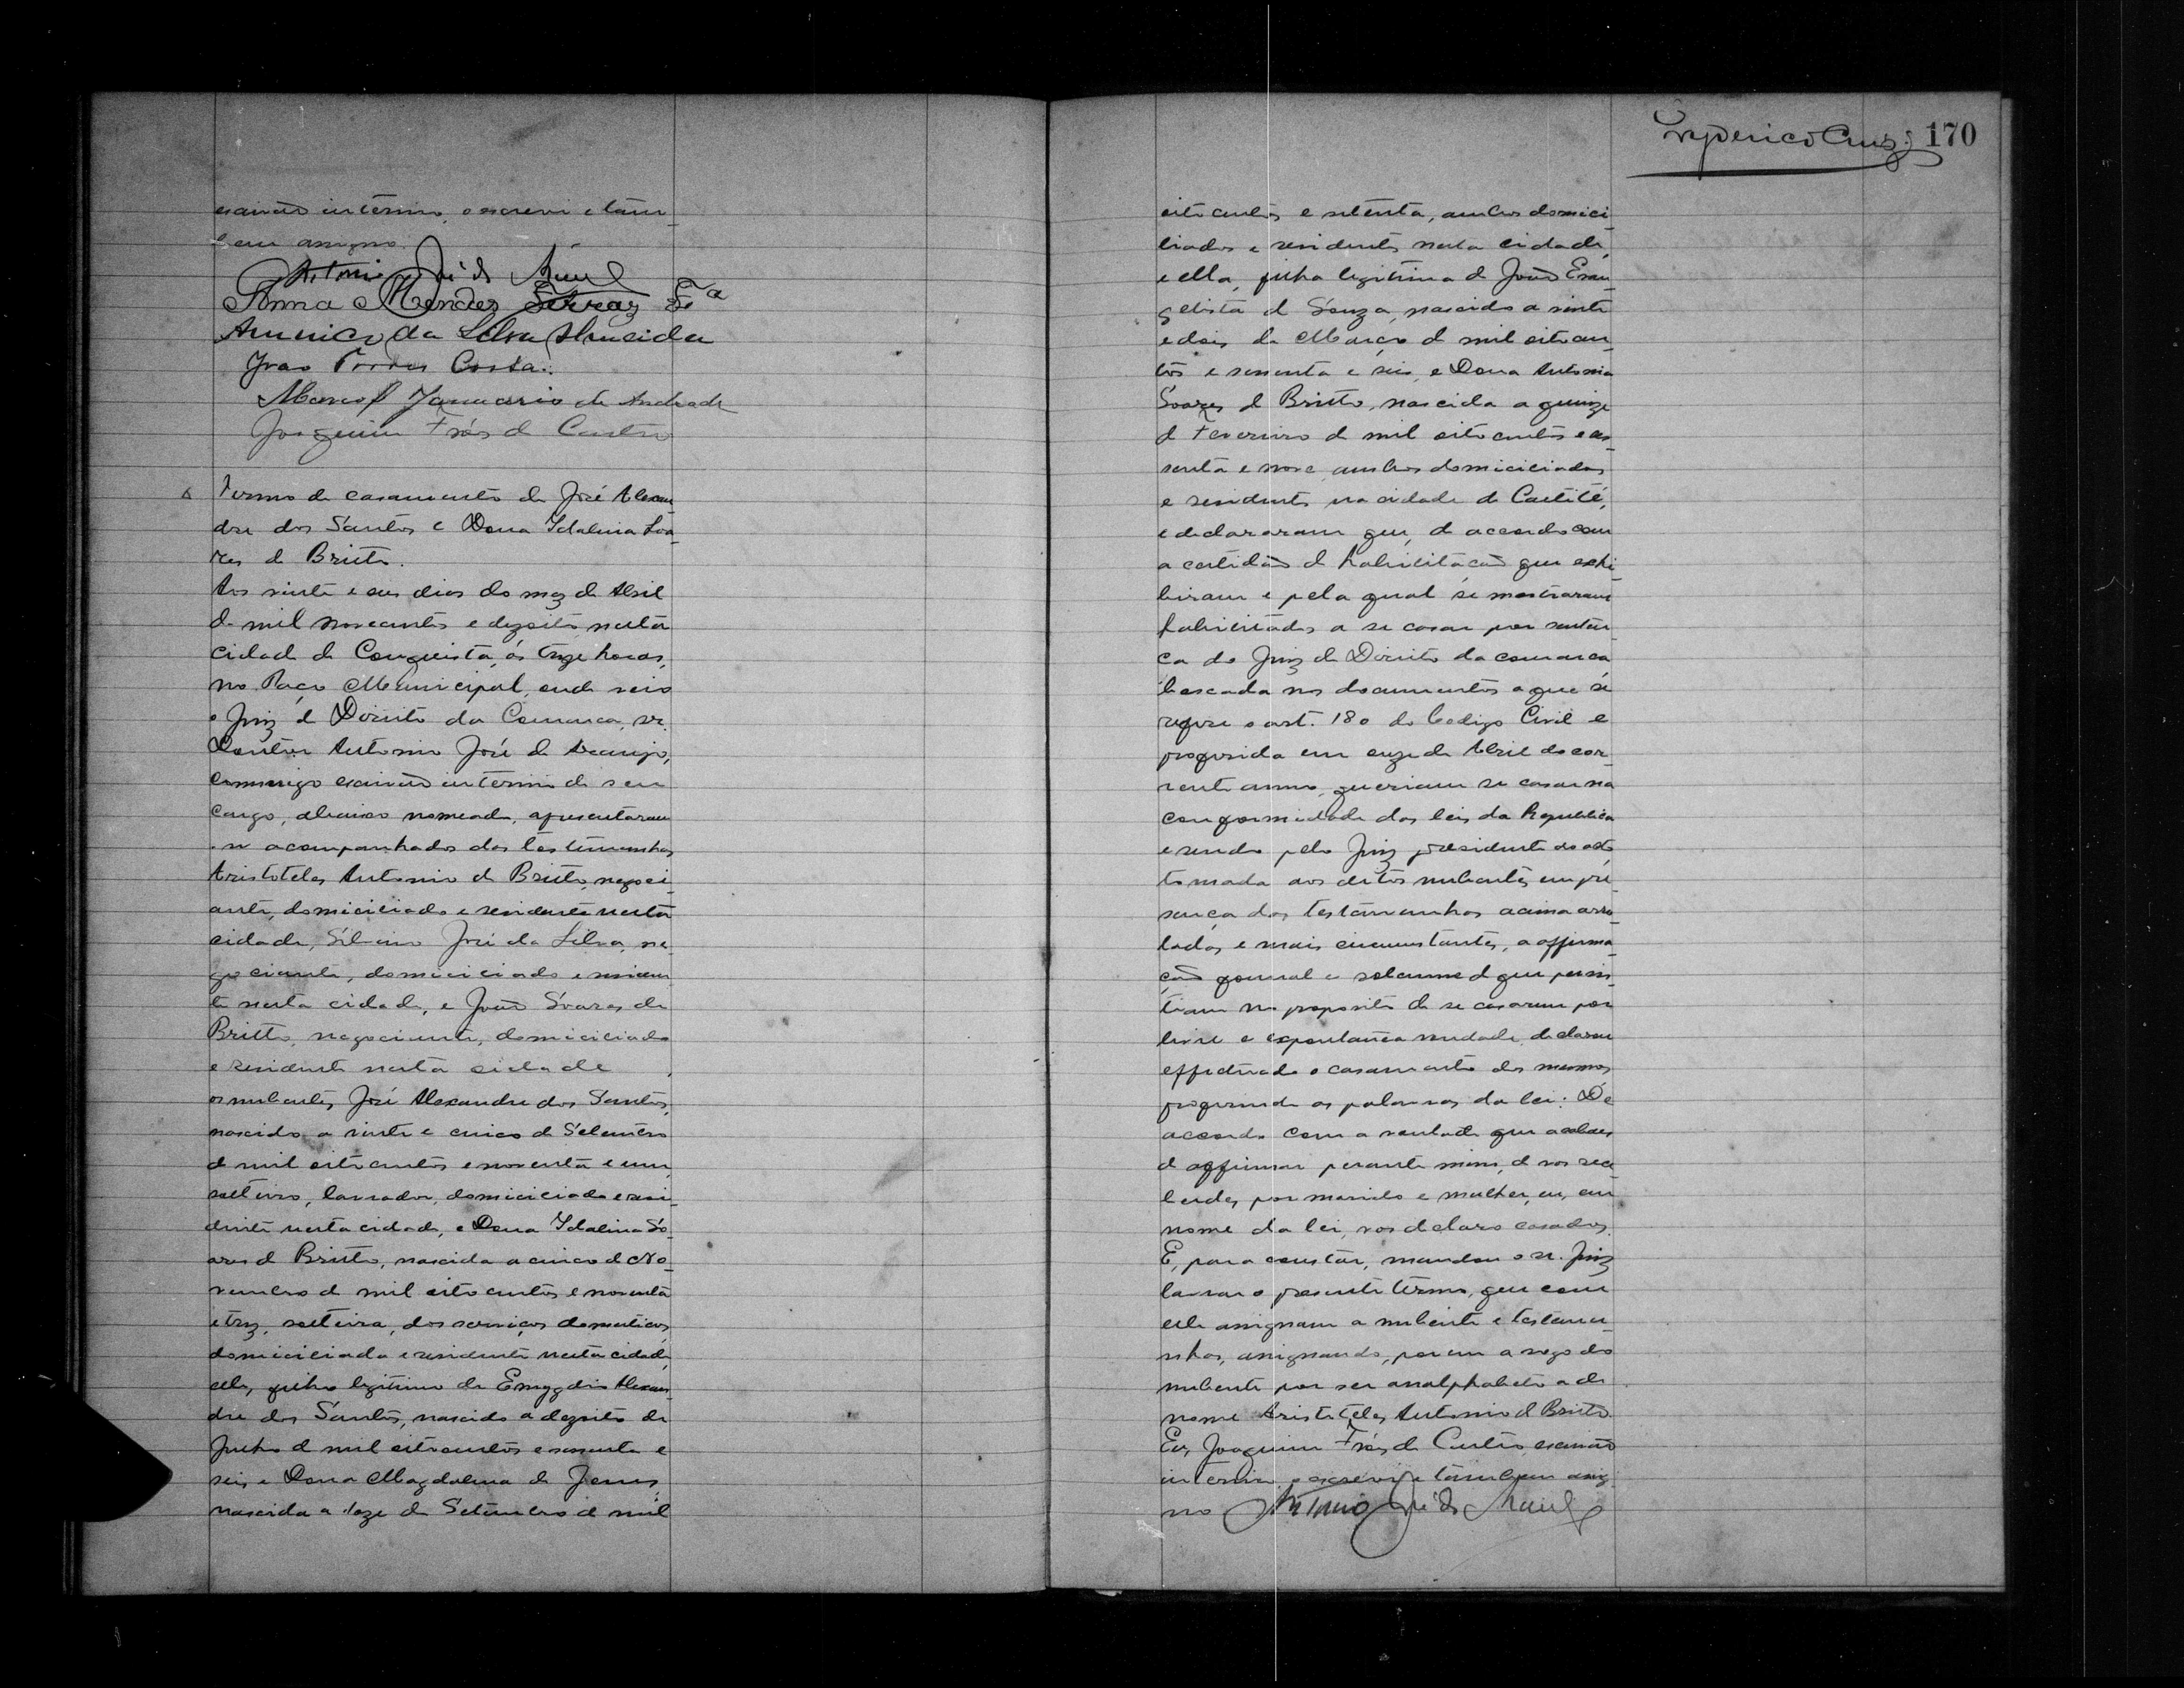 escrivão interino, o escrevi e tam-
bem assigno.
Antonio José de Araujo
Anna Mendes Ferraz Fª
Americo da Silva Almeida
João Torres Costa.
Manoel Januario de Andrade
Joaquim Fróes de Castro
Termo de casamento de José Alexan-
dre dos Santos e Dona Idalina Soa-
res de Britto.
Aos vinte e seis dias do mez de Abril
de mil novecentos e dezoito, nesta
cidade de Conquista, ás treze horas,
no Paço Municipal, onde veio
o Juiz de Direito da Comarca, sr.
Doutor Antonio José de Araujo,
commigo escrivão interino de seu
cargo, abaixo nomeado, apresentaram
-se acompanhados das testemunhas
Aristoteles Antonio de Britto, negoci-
ante, domiciliado e residente nesta
cidade, Silvino José da Silva, ne-
gociante, domiciliado e residen-
te nesta cidade, e João Soares de
Britto, negociante, domiciliado
e residente nesta cidade,
os nubentes, José Alexandre dos Santos,
nascido a vinte e cinco de Setembro
de mil oitocentos e noventa e um,
solteiro, lavrador, domiciliado e resi-
dente nesta cidade, e Dona Idalina So-
ares de Britto, nascida a cinco de No-
vembro de mil oitocentos e noventa
e trez, solteira, dos serviços domesticos,
domiciliada e residente nesta cidade,
elle, filho legitimo de Emygdio Alexan-
dre dos Santos, nascido a dezoito de
Julho de mil oitocentos e sessenta e
seis e Dona Magdalena de Jesus,
nascida a doze de Setembro de mil
Frederico Cruz 170
oitocentos e setenta, ambos domici-
liados e residentes nesta cidade,
e ella, filha legitima de João Evan-
gelista de Souza, nascido a vinte
e dois de Março de mil oitocen-
tos e sessenta e seis, e Dona Antonia
Soares de Britto, nascida a quinze
de Fevereiro de mil oitocentos e ses-
senta e nove, ambos domiciliados
e residentes na cidade de Caetité,
e declararam que, de accordo com
a certidão de habilitação que exhi-
biram e pela qual se mostraram
habilitados a se casar por senten-
ça do Juiz de Direito da comarca
baseada nos documentos a que se
refere o art. 180 do Codigo Civil e
proferida em onze de Abril do cor-
rente anno, queriam se casar na
conformidade das leis da Republica
e sendo pelo Juiz presidente do acto
tomada aos ditos nubentes, em pre-
sença das testemunhas acima arro-
ladas e mais circumstantes, a affirma-
ção formal e solemne de que persis-
tiam no proposito de se casarem por
livre e espontanea vontade, declarou
effectuado o casamento dos mesmos
proferindo as palavras da lei: De
accordo com a vontade que acabaes
de affirmar perante mim, de vos rece-
berdes por marido e mulher, eu, em
nome da lei, vos declaro casados.
E, para constar, mandou o sr. Juiz
lavrar o presente termo, que com
elle assignam a nubente e testemu-
nhas, assignando, porem a rogo do
nubente por ser analphabeto a de
nome Aristoteles Antonio de Britto.
Eu, Joaquim Fróes de Castro, escrivão
interino, o escrevi e tambem assig-
no Antonio José de Araujo